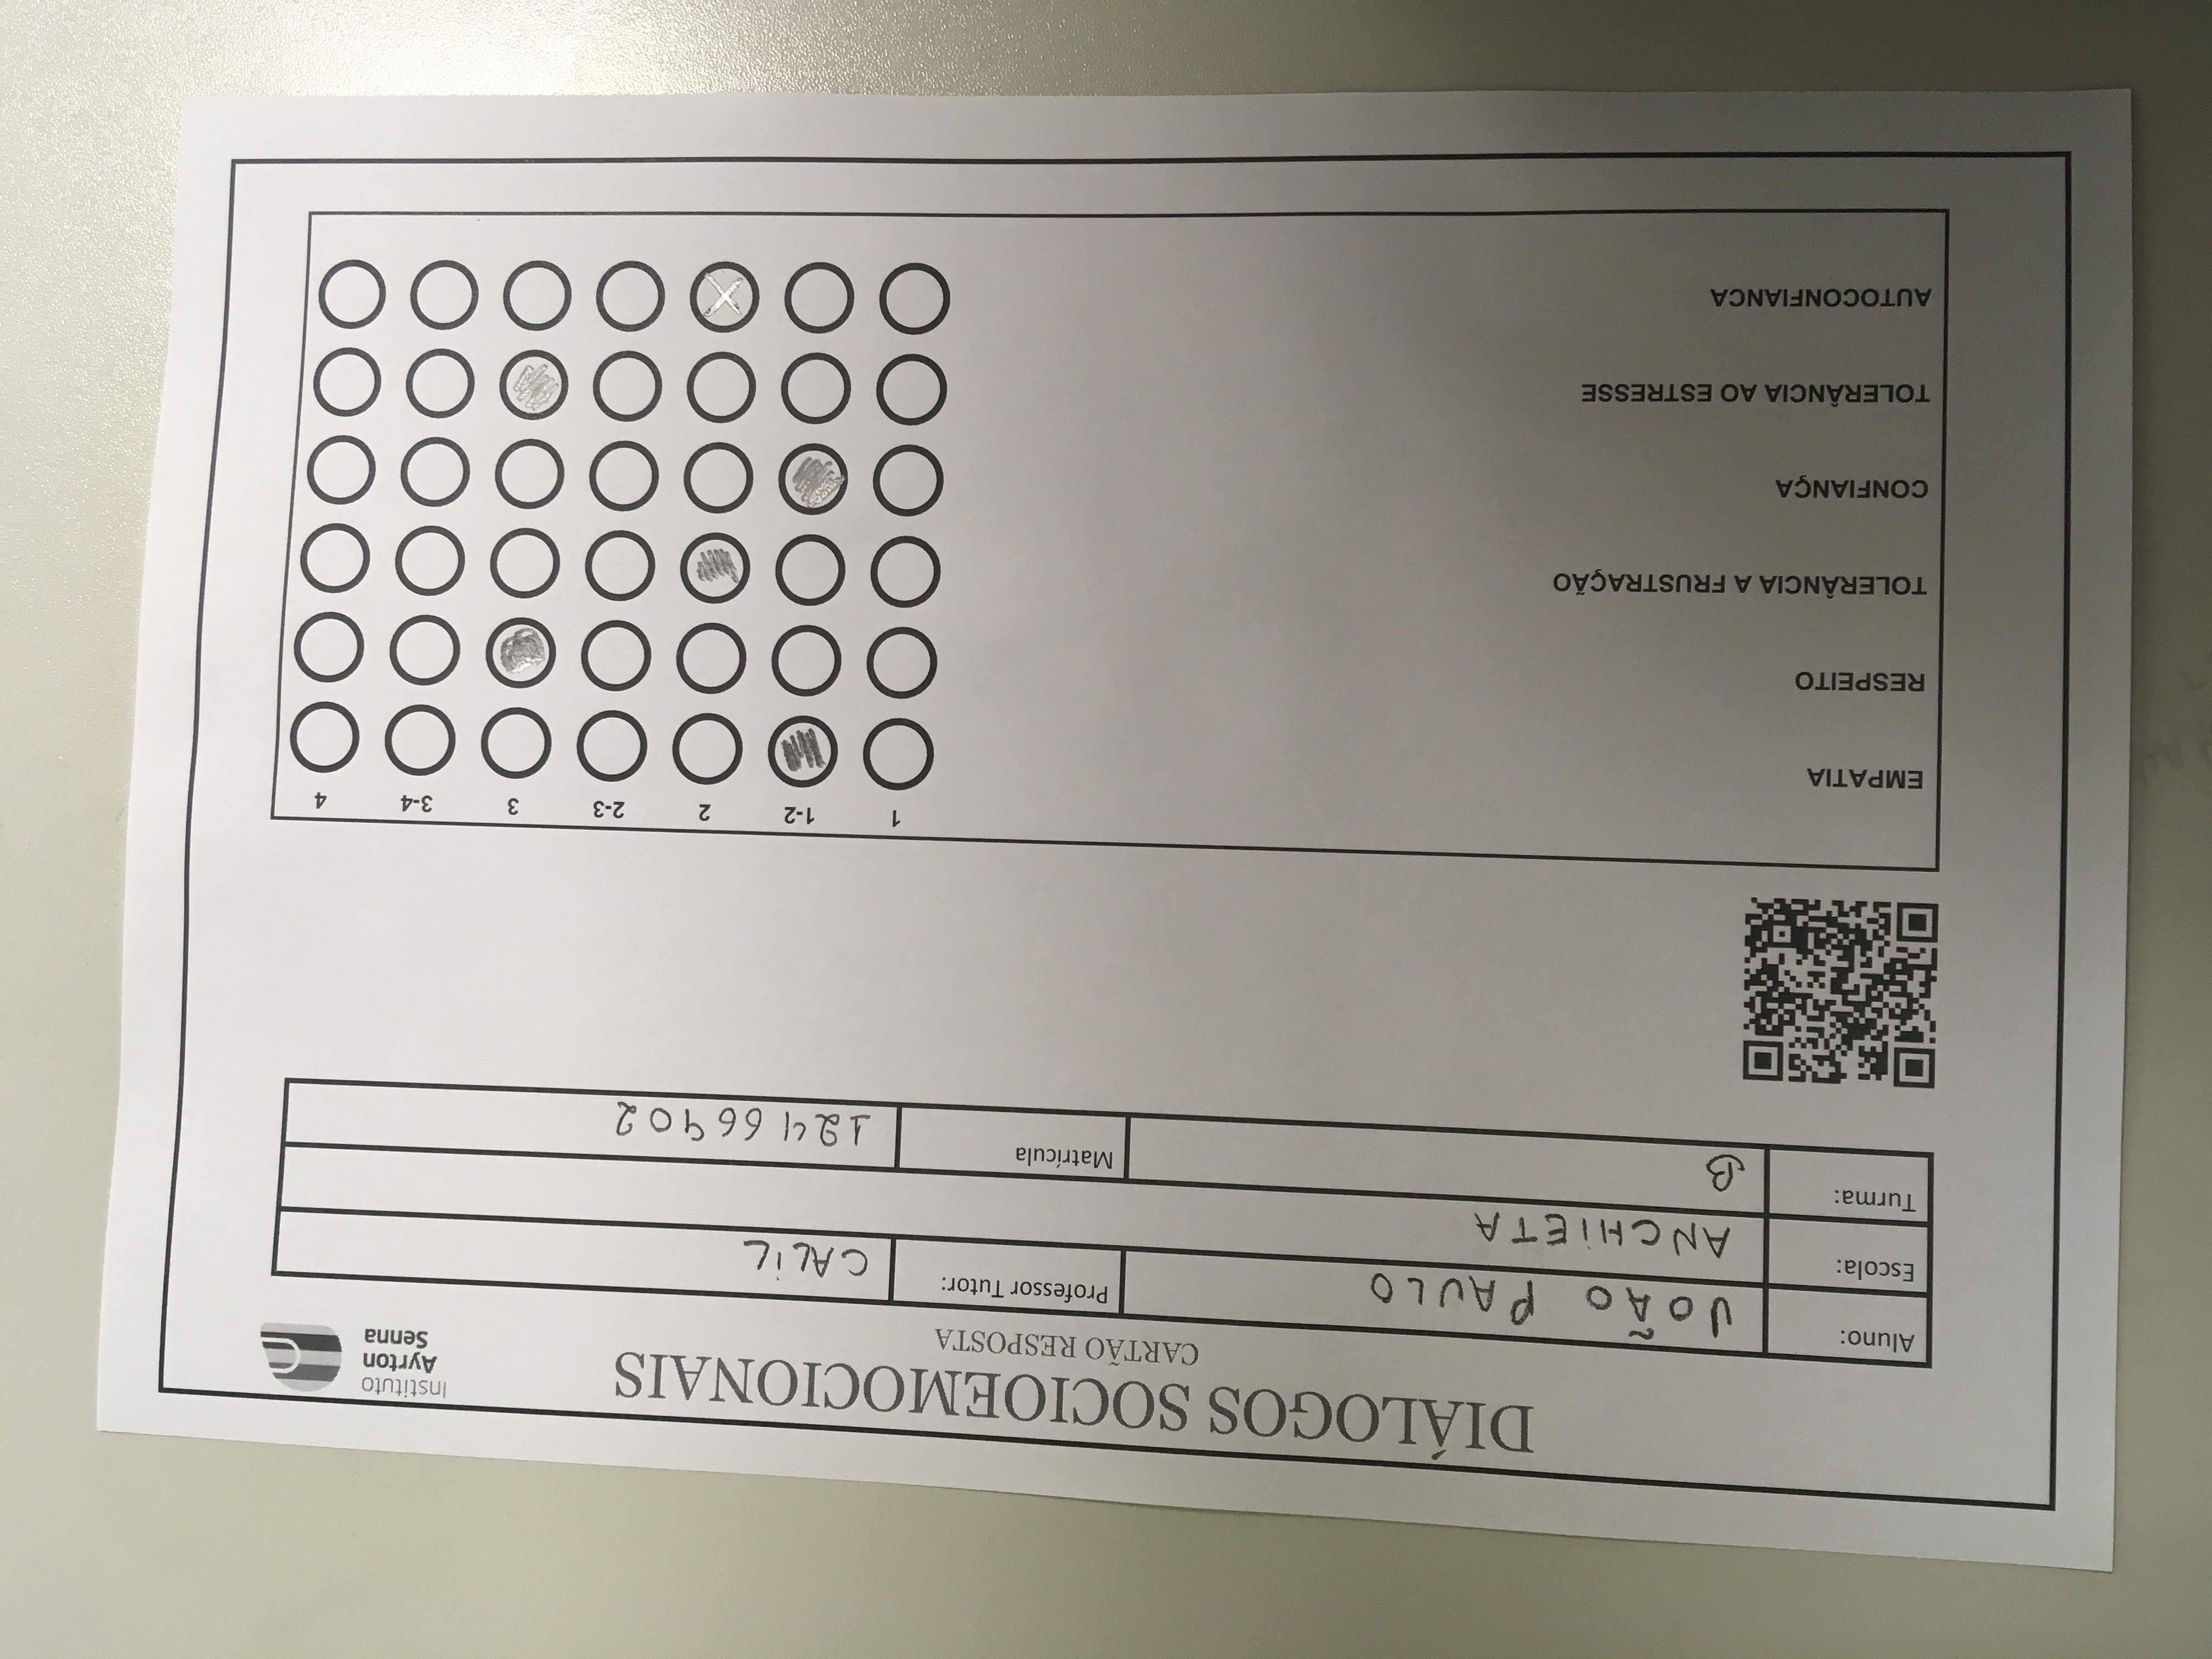 DIÁLOGOS SOCIOEMOCIONAIS
CARTÃO RESPOSTA
Instituto
Ayrton
Senna
Aluno: JOÃO PAULO Professor Tutor: CALIL
Escola: ANCHIETA
Turma: B Matrícula 12466902
1 1-2 2 2-3 3 3-4 4
EMPATIA
RESPEITO
TOLERÂNCIA A FRUSTRAÇÃO
CONFIANÇA
TOLERÂNCIA AO ESTRESSE
AUTOCONFIANCA